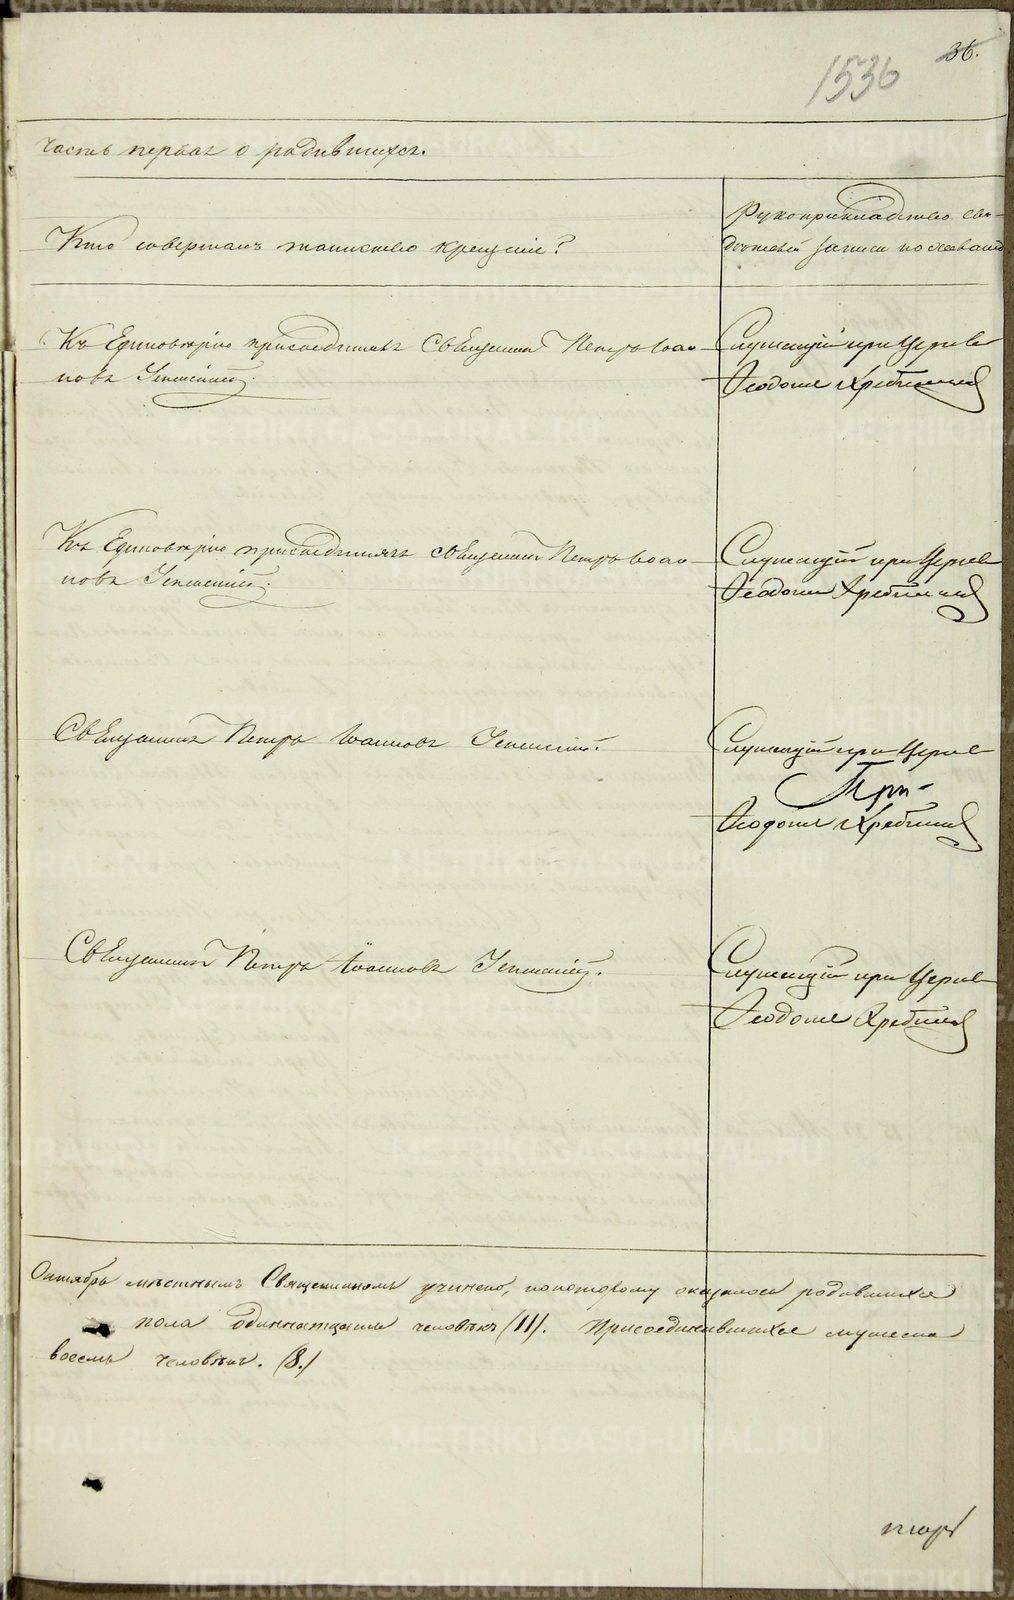 36.
1536
Часть первая о родившихся.
Кто совершалъ таинство крещенія?
Рукоприкладство сви-
дѣтелей записи по желанію
Къ Единовѣрію присоединилъ Священникъ Петръ Іоан-
новъ Успенскій.
Служащій при Церкве
Ѳеодосій
Къ Единовѣрію присоединилъ Священникъ Петръ Іоан-
новъ Успенскій.
Служащій при Церкве
Ѳеодосій
Священникъ Петръ Іоанновъ Успенскій.
Служащій при Церкве
При-
Ѳеодосій
Священникъ Петръ Іоанновъ Успенскій.
Служащій при Церкве
Ѳеодосій
Октябрь мѣстнымъ Священникомъ учинено, по которому оказалось родившихся
пола одиннатцать человѣкъ (11). Присоединившихся мужеска
восемь человѣкъ. (8.)
METRIKI.GASO-URAL.RU